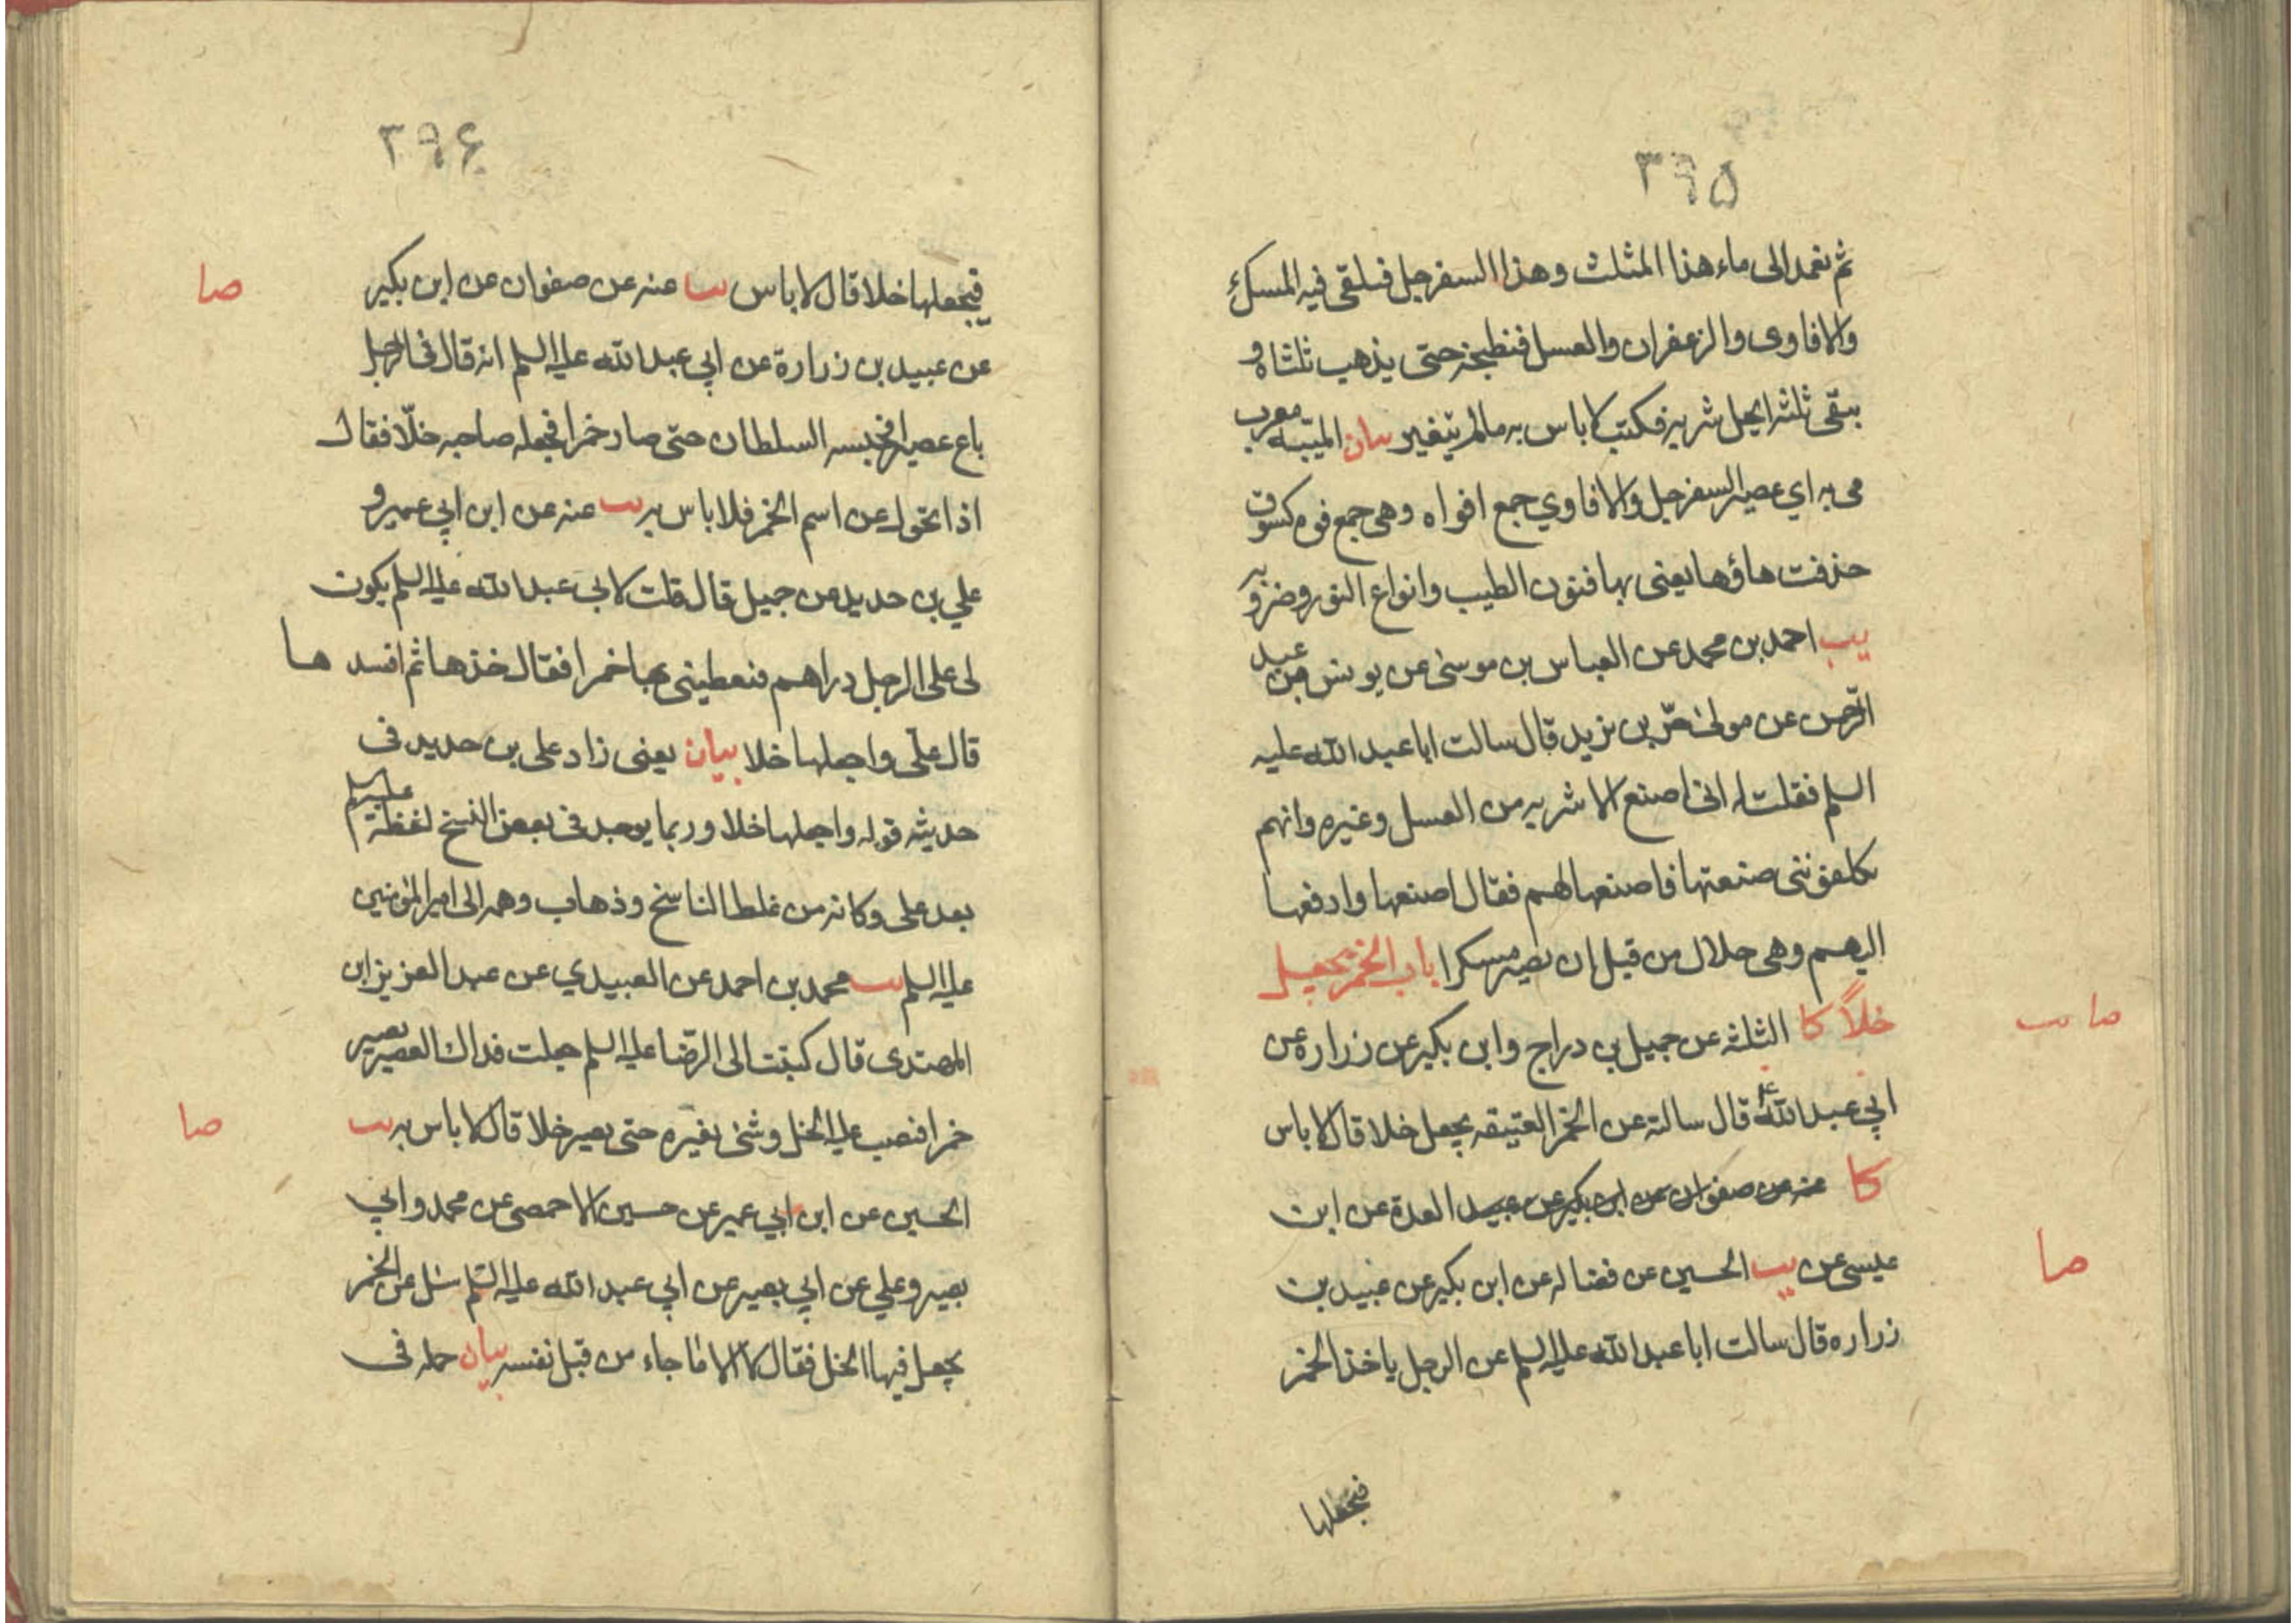 ٣٩۵
ثم نعمد الى ماء هذا المثلث وهذا السفرجل فيلقى فيه المسك
والافاوى والزعفران والعسل فنطبخه حتى يذهب ثلثاه و
يبقى ثلثه ايحل شربه فكتب لا باس به مالم يتغير بيان الميبه معرب
مى به اي عصير السفرجل والافاوي جمع افواه وهى جمع فوه كسوق
حذفت هاؤها يعنى بها فنون الطيب وانواع النور وضروبه
يب احمد بن محمد عن العباس بن موسى عن يونس بن عبد
الرحمن عن مولى حرّ بن يزيد قال سالت ابا عبد الله عليه
السلم فقلت له انى اصنع الاشربه من العسل وغيره وانهم
يكلفوننى صنعتها فاصنعها لهم فقال اصنعها وادفعها
اليهم وهى حلال من قبل ان يصير مسكرا باب الخمر يجعل
خلاً كا الثلثه عن جميل بن دراج وابن بكير عن زراره عن
صا يب
ابي عبد الله ع قال سالته عن الخمر العتيقه يجعل خلا قال لا باس
كا عنه عن صفوان عن ابن بكير عن عبيد العدة عن ابن
عيسى عن يب الحسين عن فضاله عن ابن بكير عن عبيد بن
صا
زراره قال سالت ابا عبد الله عليه السلم عن الرجل ياخذ الخمر
فيجعلها
٣٩۶
فيجعلها خلا قال لا باس يب عنه عن صفوان عن ابن بكير
صا
عن عبيد بن زرارة عن ابي عبد الله عليه السلم انه قال فى الرجل
باع عصيرا فحبسه السلطان حتى صار خمرا فجعله صاحبه خلّا فقال
اذا تحول عن اسم الخمر فلا باس به يب عنه عن ابن ابي عمير و
علي بن حديد عن جميل قال قلت لابي عبد الله عليه السلم يكون
لى على الرجل دراهم فيعطينى بها خمرا فقال خذها ثم افسدها
قال على واجعلها خلا بيان يعنى زاد على بن حديد فى
حديثه قوله واجعلها خلا وربما يوجد فى بعض النسخ لفظة عليه السلم
بعد على وكانه من غلط الناسخ وذهاب وهمه الى امير المؤمنين
عليه السلم يب محمد بن احمد عن العبيدي عن عبد العزيز ابن
المهتدى قال كتبت الى الرضا عليه السلم جعلت فداك العصير يصير
خمرا فيصب عليه الخل وشئ يغيره حتى يصير خلا قال لا باس به يب
صا
الحسين عن ابن ابي عمير عن حسين الاحمصى عن محمد وابي
بصير وعلي عن ابي بصير عن ابي عبد الله عليه السلم سئل عن الخمر
يجعل فيها الخل فقال لا الا ما جاء من قبل نفسه بيان حمله فى